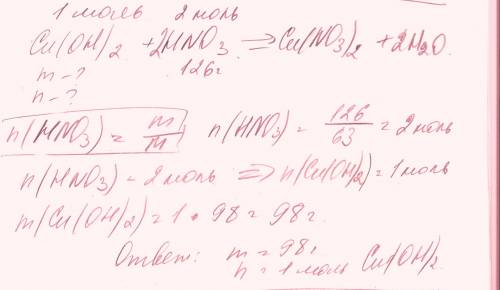 1 моль 2 моль
Cu(OH)2 + 2HNO3 => Cu(NO3)2 + 2H2O.
m - ? 126г
n - ?
n(HNO3) = m/m n(HNO3) = 126/63 = 2 моль
n(HNO3) = 2 моль => n(Cu(OH)2) = 1 моль
m(Cu(OH)2) = 1 • 98 = 98 г.
Ответ: m = 98г
n = 1 моль Cu(OH)2.